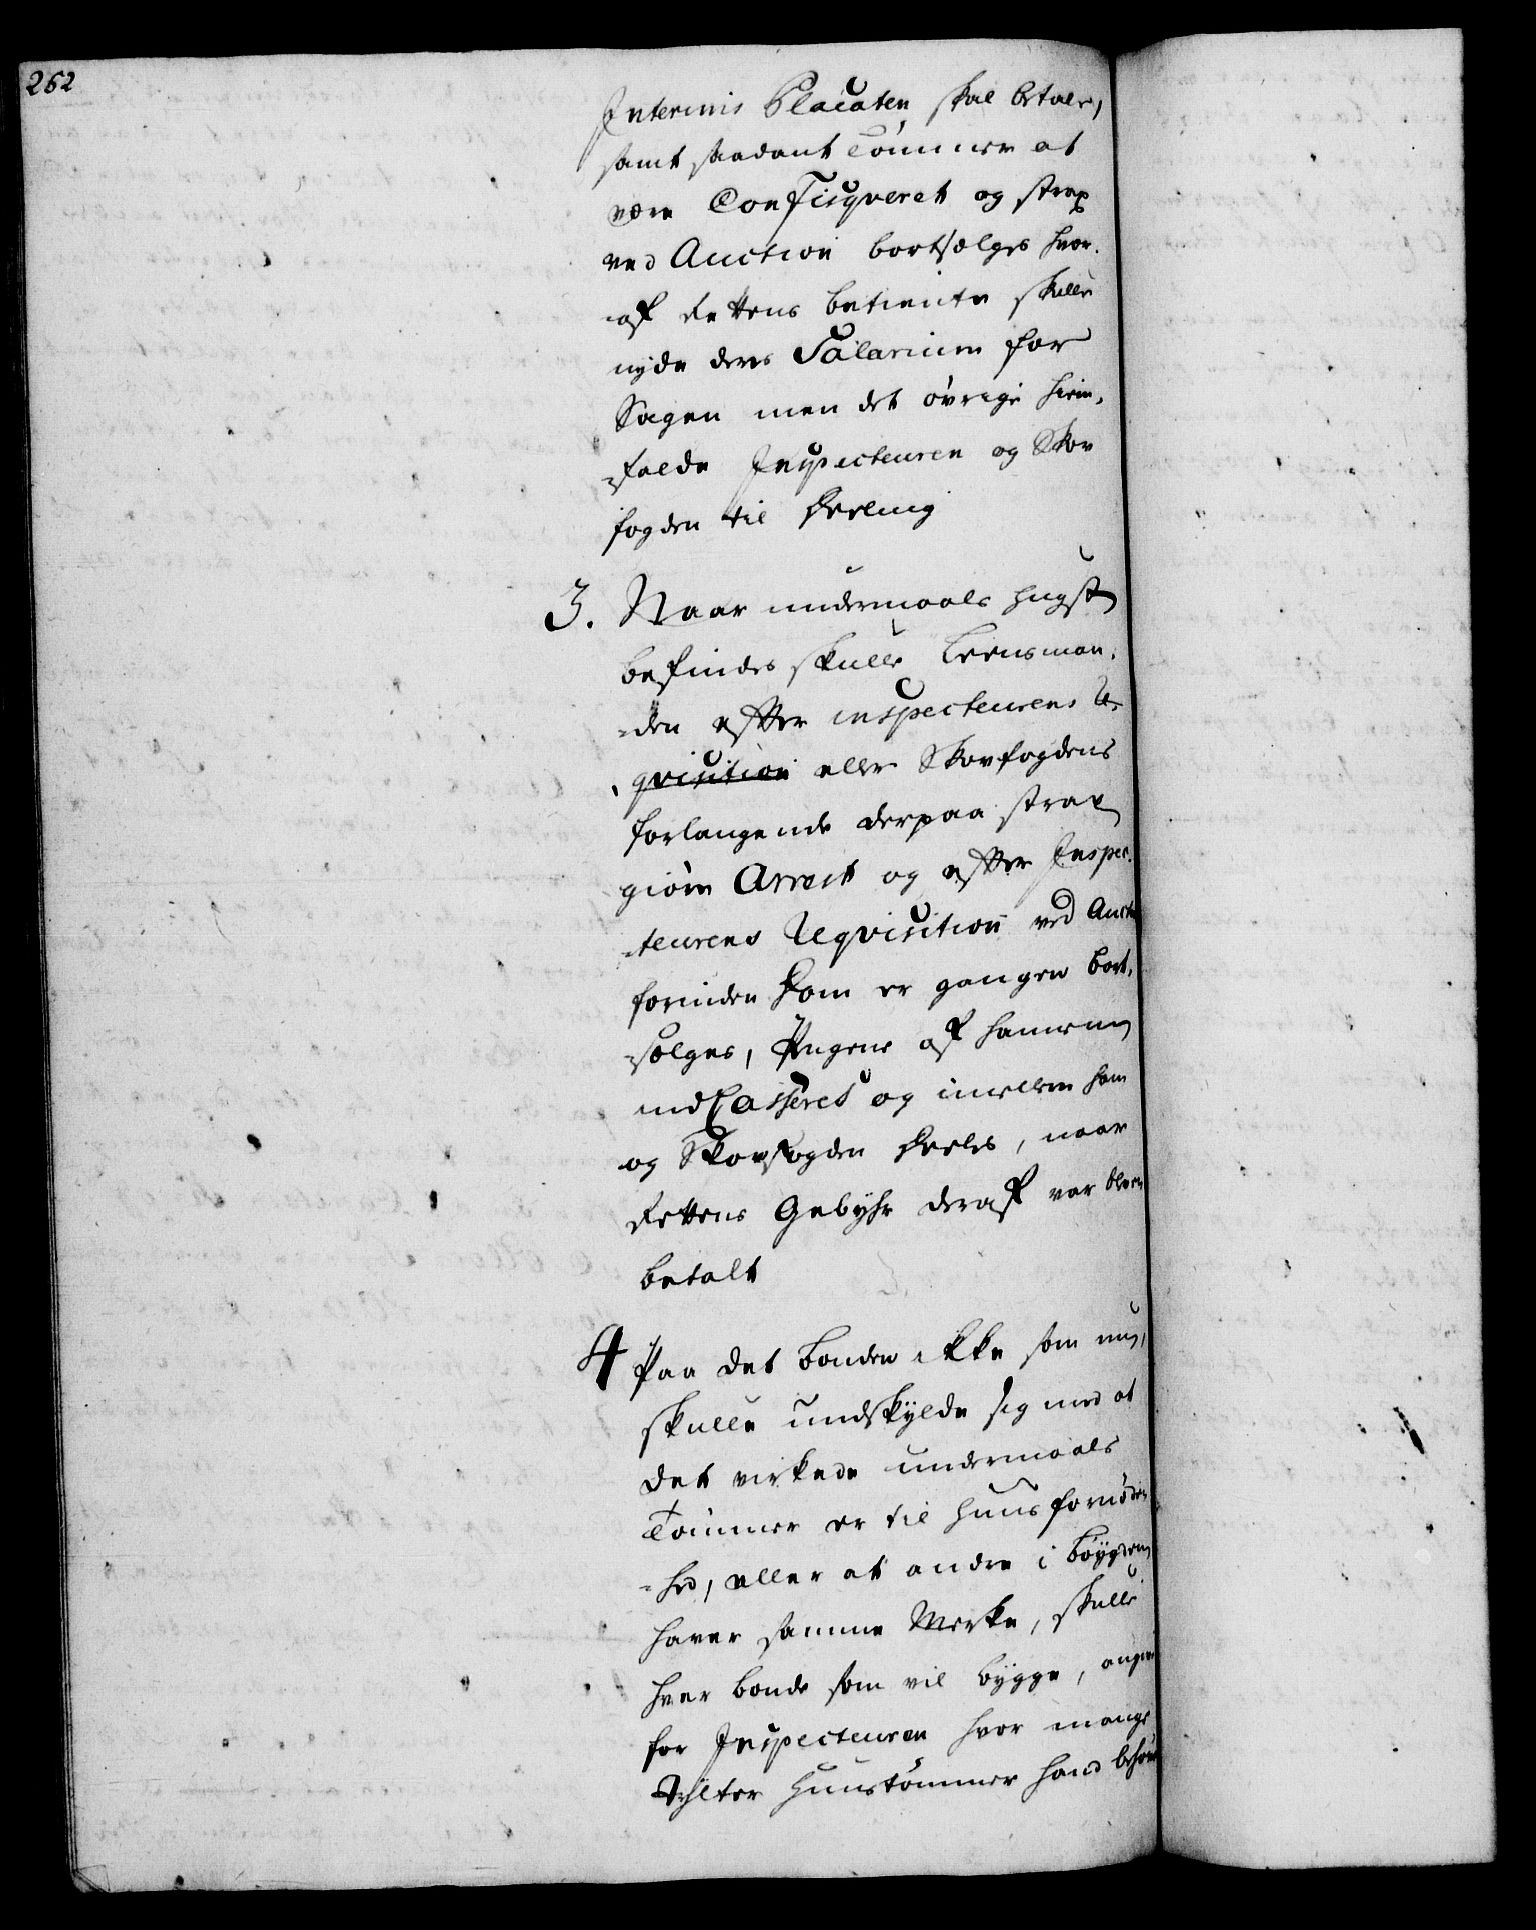 262
Interims Placaten skal betale,
samt saadant Tømmer at
være Confisqveret og strax
ved Auction bortsælges hvor-
af Rettens betiente skulle
nyde deres Salarium for
Sagen men det øvrige hiem-
-falde Inspecteuren og Skov
fogden til Deeling
3. Naar undermaals hugst
befindes skulle Lensman-
-den efter inspecteurens Re-
qvisition eller Skovfogdens
forlangende derpaa strax
giøre Arrest og efter Inspec-
-teurens Reqvisition ved Auction
forinden Dom er gangen bort-
-sælges, Pengene af hannem
indCasseret og imellem ham
og Skovfogden deeles, naar
Rettens Gebyhr deraf var bleven
betalt
4 Paa det bonden ikke som nu,
skulle undskylde sig med at
det virkede undermaals
Tømmer er til huusfornøden-
-hed, eller at andre i bøygden
haver samme Merke, skulle
hver bonde som vil bygge, angive
for Inspecteuren hvor mange
Tylter Huustømmer hand behøve